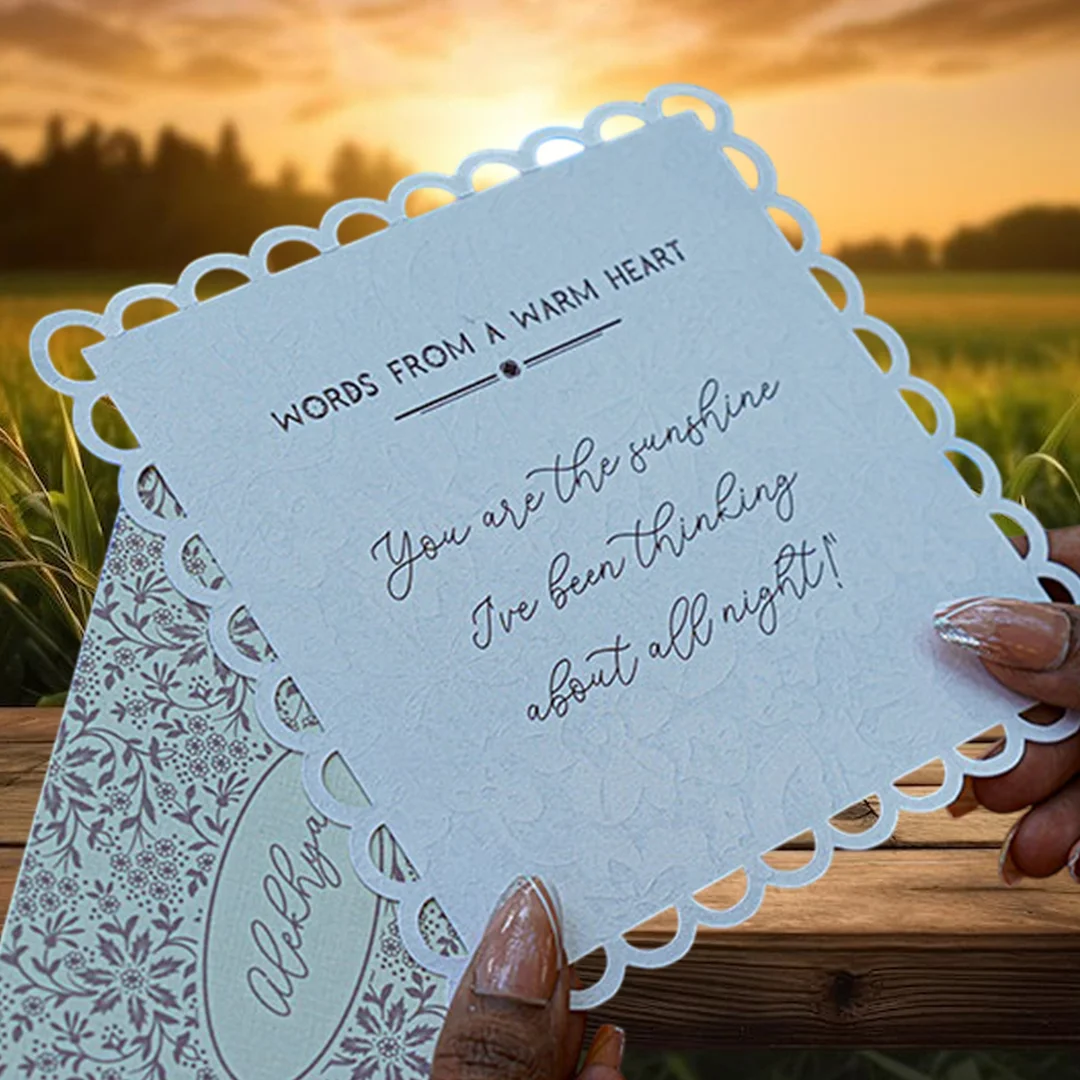 WORDS FROM A WARM HEART
You are the sunshine
I've been thinking
about all night!"
Alekhya